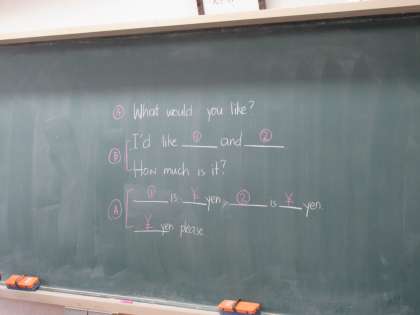 Ⓐ What would you like?
Ⓑ I'd like ① and ②
How much is it?
Ⓐ ① is ¥ yen, ② is ¥ yen.
¥ yen please